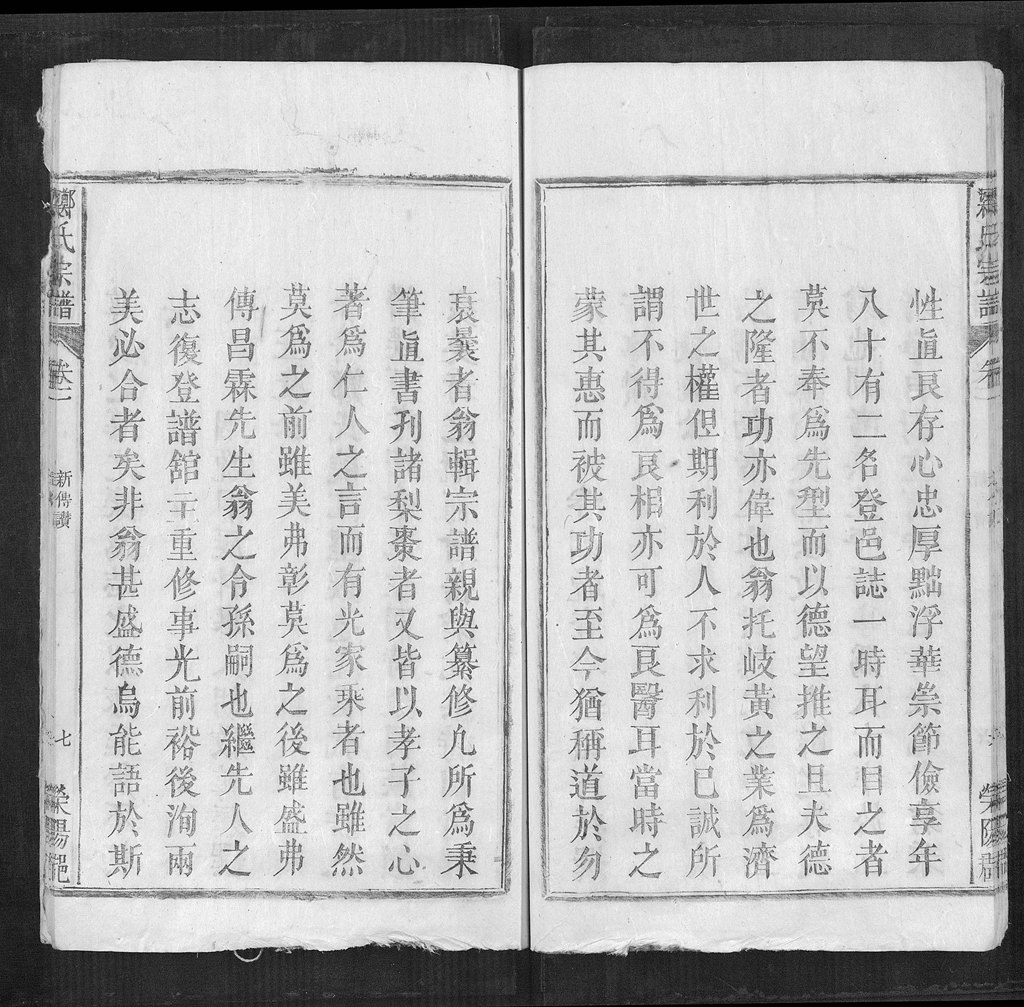 性眞良存心忠厚黜浮華崇節儉享年
八十有二名登邑誌一時耳而目之者
莫不奉爲先型而以德望推之且夫德
之隆者功亦偉也翁托岐黃之業爲濟
世之權但期利於人不求利於己誠所
謂不得爲良相亦可爲良醫耳當時之
蒙其惠而被其功者至今猶稱道於勿
衰曩者翁輯宗譜親與纂修凡所爲秉
筆直書刊諸梨棗者又皆以孝子之心
著爲仁人之言而有光家乘者也雖然
莫爲之前雖美弗彰莫爲之後雖盛弗
傳昌霖先生翁之令孫嗣也繼先人之
志復登譜舘主重修事光前裕後洵兩
美必合者矣非翁甚盛德烏能語於斯
鄭氏宗譜
卷二
新傳讚
七